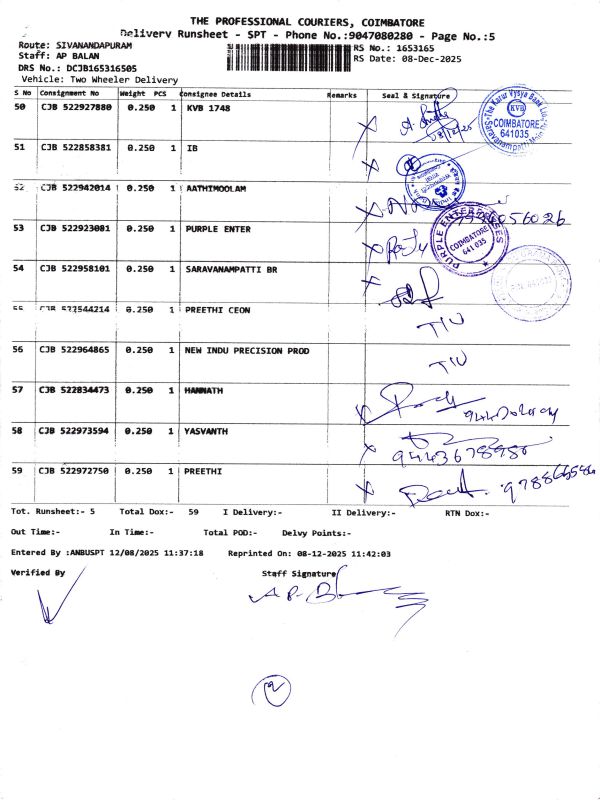 THE PROFESSIONAL COURIERS, COIMBATORE
Delivery Runsheet - SPT - Phone No.:9047080280 - Page No.:5
Route: SIVANANDAPURAM
RS No.: 1653165
Staff: AP BALAN
RS Date: 08-Dec-2025
DRS No.: DCJB165316505
Vehicle: Two Wheeler Delivery
S No Consignment No Weight PCS Consignee Details Remarks Seal & Signature
50 CJB 522927880 0.250 1 KVB 1748
08/12/25
The Karur Vysya Bank Ltd.
KVB
COIMBATORE
641035
51 CJB 522858381 0.250 1 IB
52 CJB 522942014 0.250 1 AATHIMOOLAM
53 CJB 522923081 0.250 1 PURPLE ENTER
PURPLE ENTERPRISES
COIMBATORE
641 035
54 CJB 522958101 0.250 1 SARAVANAMPATTI BR
55 CJB 522544214 0.250 1 PREETHI CEON
56 CJB 522964865 0.250 1 NEW INDU PRECISION PROD
57 CJB 522834473 0.250 1 HANNATH
58 CJB 522973594 0.250 1 YASVANTH
59 CJB 522972750 0.250 1 PREETHI
Tot. Runsheet:- 5 Total Dox:- 59 I Delivery:- II Delivery:- RTN Dox:-
Out Time:- In Time:- Total POD:- Delvy Points:-
Entered By :ANBUSPT 12/08/2025 11:37:18 Reprinted On: 08-12-2025 11:42:03
Verified By Staff Signature
2